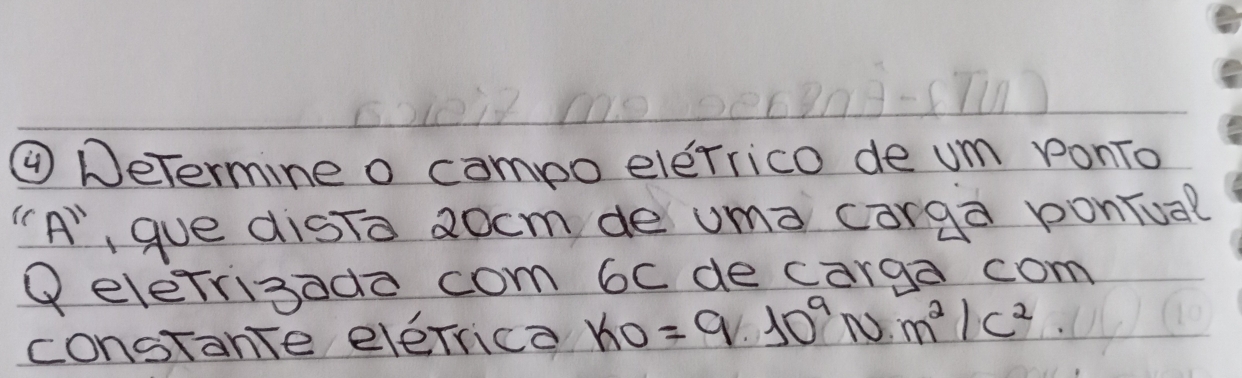 ④ Determine o campo elétrico de um ponto
"A", que dista 20cm de uma carga pontual
Q eletrizada com 6C de carga com
constante elétrica K0 = 9.10⁹ N.m²/C².